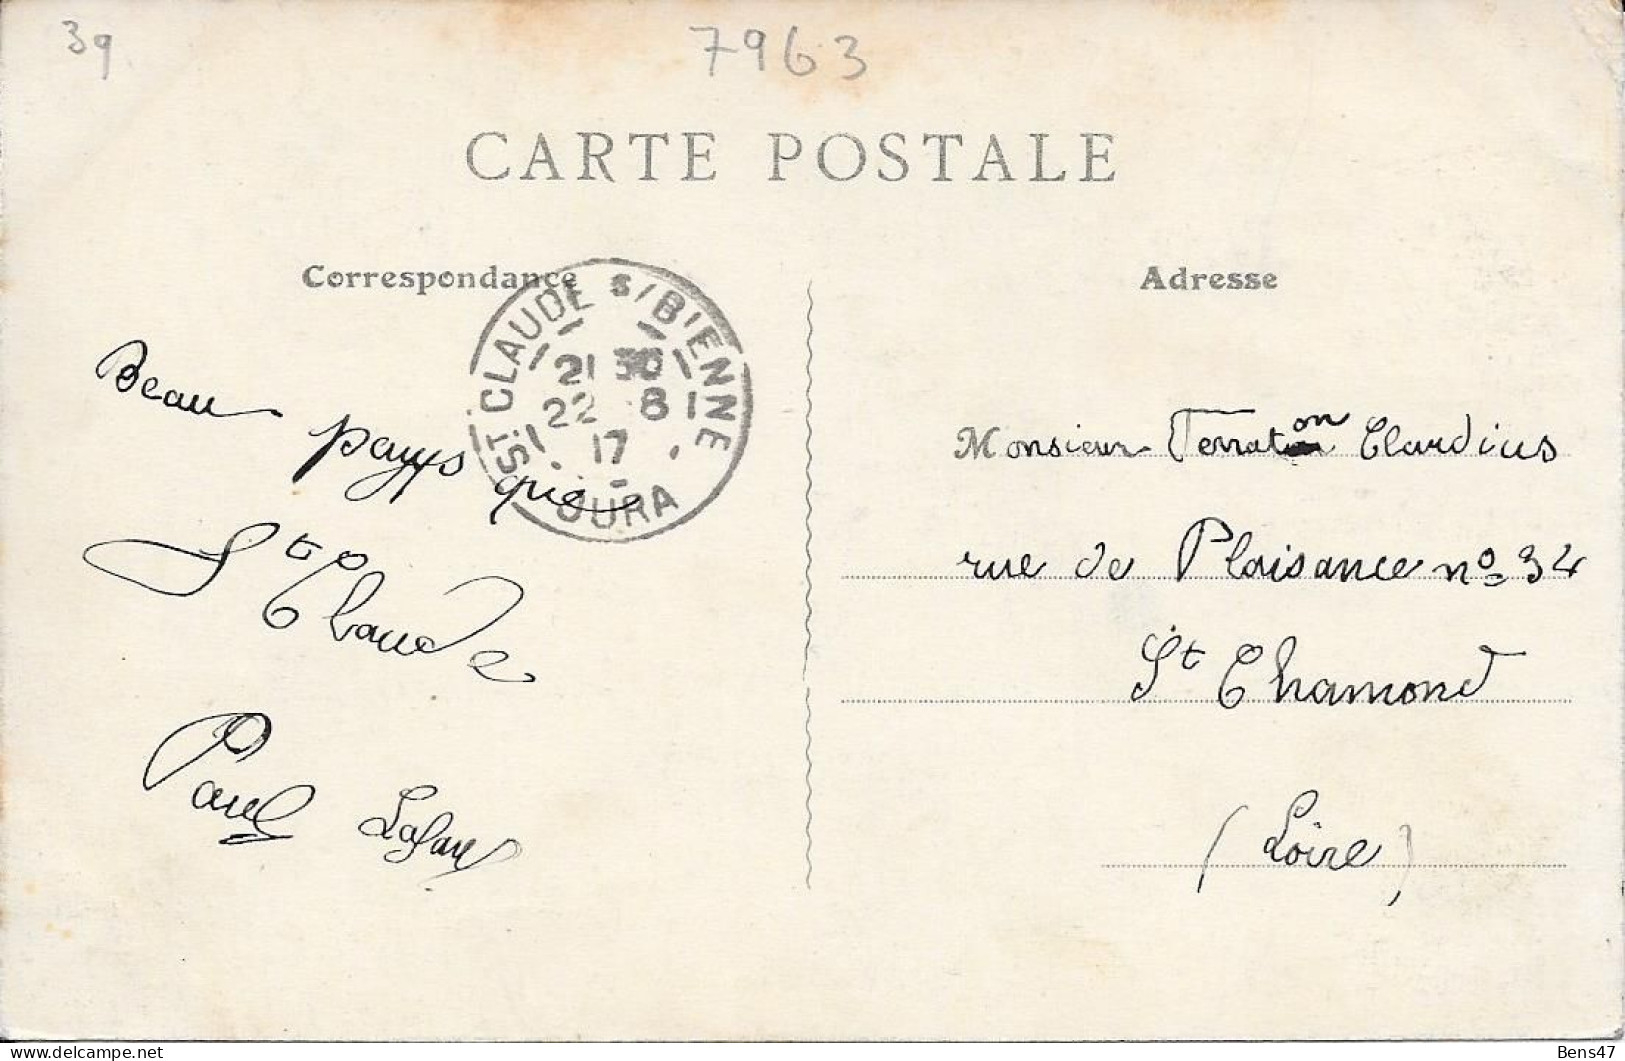 39
7963
CARTE POSTALE
Correspondance
Adresse
ST CLAUDE S/BIENNE
21 30
22 8
17
JURA
Beau pays que
St Claude
Paul
Monsieur Terraton Claudius
rue de Plaisance no 34
St Chamond
(Loire)
Bens47